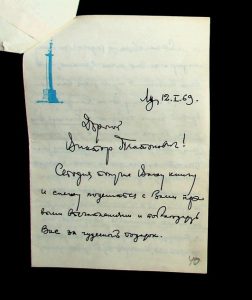 12.I.69.
Дорогой
Виктор Платонович!
Сегодня получил Вашу книгу
и спешу поделиться с Вами пер-
выми впечатлениями и поблагодарить
Вас за чудесный подарок.